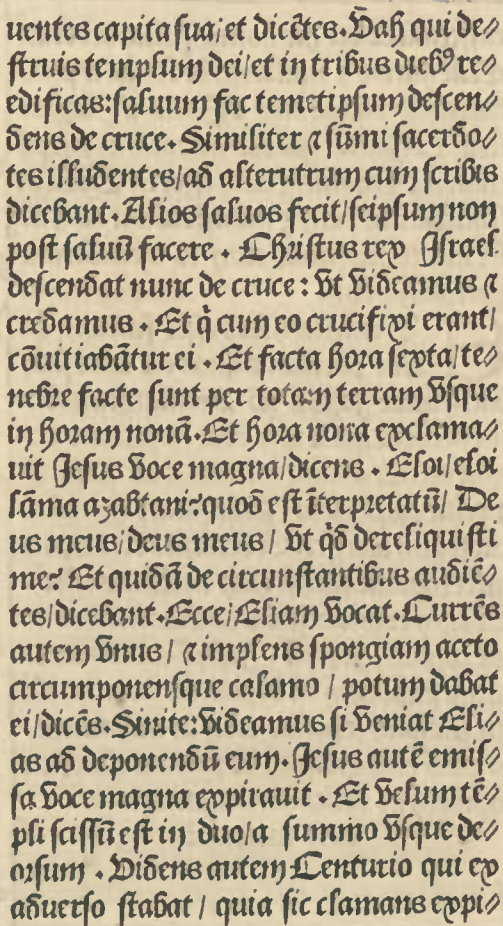 uentes capita sua/ et dicētes. Vah qui de⸗
struis templum dei/ et in tribus diebꝰ re⸗
edificas: saluum fac temetipsum descen⸗
dens de cruce. Similiter ⁊ sūmi sacerdo⸗
tes illudentes/ ad alterutrum cum scribis
dicebant. Alios saluos fecit/ seipsum non
post saluū facere. Christus rex Israel
descendat nunc de cruce: vt videamus ⁊
credamus. Et q̇ cum eo crucifixi erant/
cōuitiabātur ei. Et facta hora sexta/ te⸗
nebre facte sunt per totam terram vsque
in horam nonā. Et hora nona exclama⸗
uit Jesus voce magna/ dicens. Eloi/ eloi
lāma azabtani? quod est īterpretatū/ De
us meus/ deus meus/ vt qd̄ dereliquisti
me? Et quidā de circunstantibus audiē⸗
tes/ dicebant. Ecce/ Eliam vocat. Currēs
autem vnus/ ⁊ implens spongiam aceto
circumponensque calamo/ potum dabat
ei/ dicēs. Sinite: videamus si veniat Eli⸗
as ad deponendū eum. Jesus autē emis⸗
sa voce magna expirauit. Et velum tē⸗
pli scissū est in duo/ a summo vsque de⸗
orsum. Videns autem Centurio qui ex
aduerso stabat/ quia sic clamans expi⸗